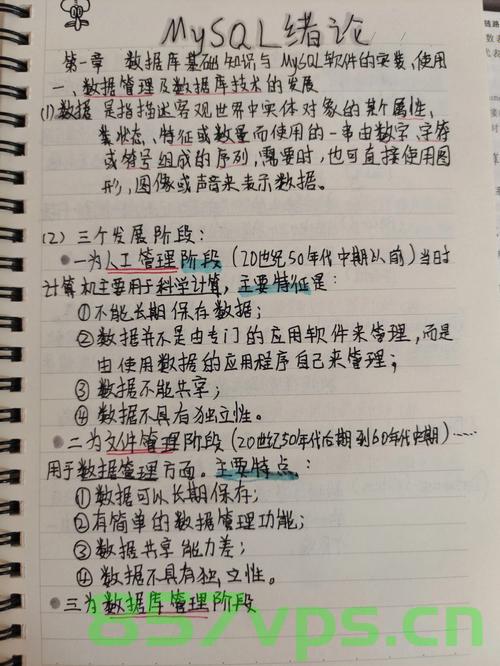 MySQL绪论
第一章 数据库基础知识与MySQL软件的安装、使用
一、数据管理及数据库技术的发展
(1)数据是指描述客观世界中实体对象的某个属性,
某状态、特征或数量而使用的一串由数字、字符
或符号组成的序列,需要时,也可直接使用图
形,图像或声音来表示数据。
(2) 三个发展阶段:
●一为人工管理阶段(20世纪50年代中期以前)当时
计算机主要用于科学计算,主要特征是:
①不能长期保存数据;
②数据并不是由专门的应用软件来管理,而是
由使用数据的应用程序自己来管理;
③数据不能共享;
④数据不具有独立性。
●二为文件管理阶段(20世纪50年代后期到60年代中期)……
用于数据管理方面。主要特点:
①数据可以长期保存;
②有简单的数据管理功能;
③数据共享能力差;
④数据不具有独立性。
●三为数据库管理阶段
857vps.cn